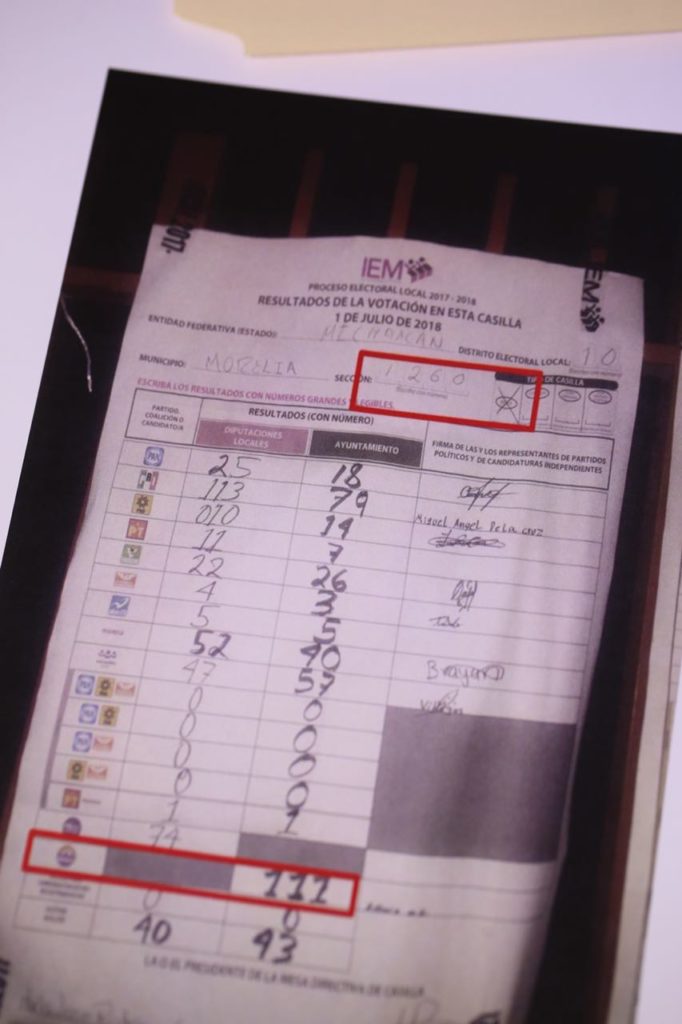 IEM
PROCESO ELECTORAL LOCAL 2017 - 2018
RESULTADOS DE LA VOTACIÓN EN ESTA CASILLA
1 DE JULIO DE 2018
ENTIDAD FEDERATIVA (ESTADO): MICHOACAN DISTRITO ELECTORAL LOCAL: 10
MUNICIPIO: MORELIA SECCIÓN: 1260 TIPO DE CASILLA
ESCRIBA LOS RESULTADOS CON NÚMEROS GRANDES Y LEGIBLES.
PARTIDO, COALICIÓN O CANDIDATO/A
RESULTADOS (CON NÚMERO)
DIPUTACIONES LOCALES AYUNTAMIENTO
FIRMA DE LAS Y LOS REPRESENTANTES DE PARTIDOS POLÍTICOS Y DE CANDIDATURAS INDEPENDIENTES
PAN 25 18
PRI 113 79
PRD 010 14 Miguel Angel De la cruz
PT 11 7
22 26
4 3
5 5
morena 52 40 Brayan
47 57
0 0
0 0
0 0
0 0
PT 1 1
74
111
0 0
40 43
LA O EL PRESIDENTE DE LA MESA DIRECTIVA DE CASILLA
IEM